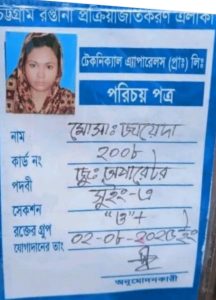 চট্টগ্রাম রপ্তানী প্রক্রিয়াজাতকরণ এলাকা
টেকনিক্যাল এ্যাপারেলস (প্রাঃ) লিঃ
পরিচয় পত্র
নাম মোসাঃ জায়েদা
কার্ড নং ২০০৮
পদবী জুঃ অপারেটর
সেকশন সুইং-এ
রক্তের গ্রুপ "ও"+
যোগদানের তাং ০২-০৮-২০২৫ইং
অনুমোদনকারী